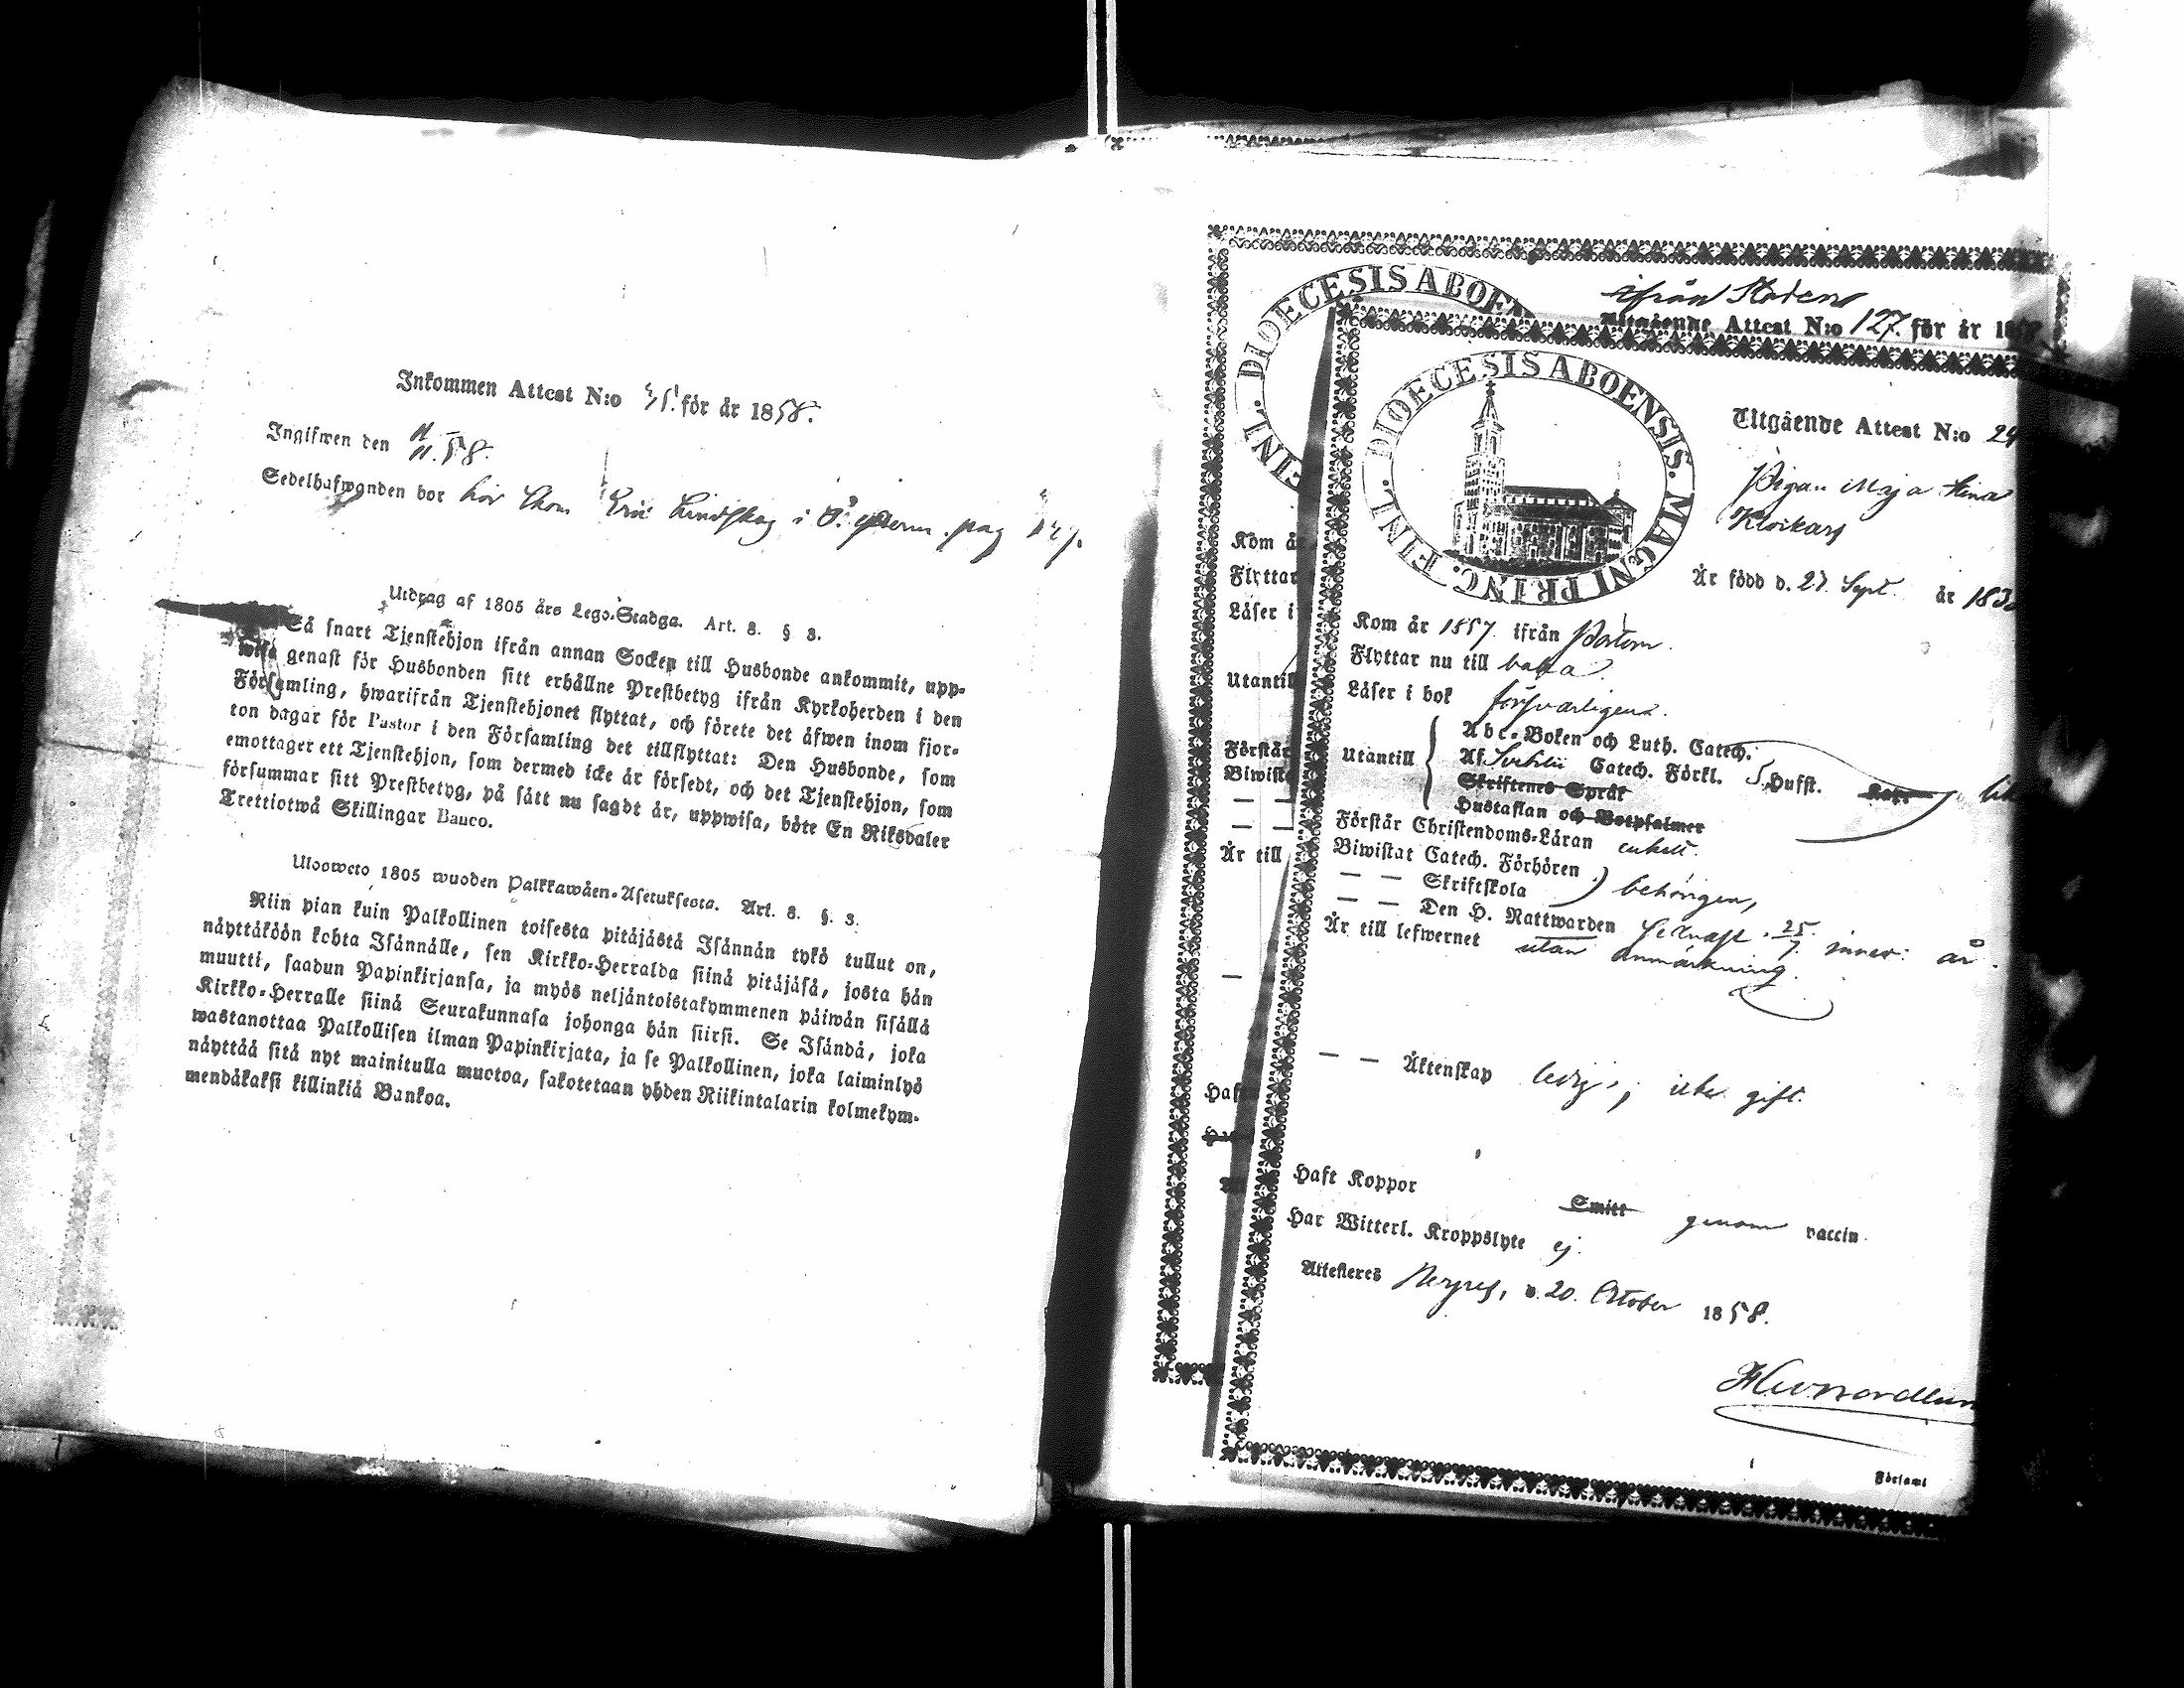 Inkommen Attest N:o för år 1858.
Ingifwen den 11/11. 58.
Sedelhafwanden bor hos Lindskog i pag
Utdrag af 1805 års Lego-Stadga. Art. 8. § 3.
Så snart Tjenstehjon ifrån annan Socken till Husbonde ankommit, upp-
wise genast för Husbonden sitt erhållne Prestbetyg ifrån Kyrkoherden i den
Församling, hwarifrån Tjenstehjonet flyttat, och förete det äfwen inom fjor-
ton dagar för Pastor i den Församling det tillflyttat: Den Husbonde, som
emottager ett Tjenstehjon, som dermed icke är försedt, och det Tjenstehjon, som
försummar sitt Prestbetyg, på sätt nu sagdt är, uppwisa, böte En Riksdaler
Trettiotwå Skillingar Banco.
Ulosweto 1805 wuoden Palkkawäen-Asetuksesta. Art. 8. §. 3.
Niin pian kuin Palkollinen toisesta pitäjästä Isännän tykö tullut on,
näyttäköön kohta Isännälle, sen Kirkko-Herralda siinä pitäjäsä, josta hän
muutti, saadun Papinkirjansa, ja myös neljäntoistakymmenen päiwän sisällä
Kirkko-Herralle siinä Seurakunnasa johonga hän siirsi. Se Isändä, joka
wastanottaa Palkollisen ilman Papinkirjata, ja se Palkollinen, joka laiminlyö
näyttää sitä nyt mainitulla muotoa, sakotetaan yhden Riikintalarin kolmekym-
mendäkaksi killinkiä Bankoa.
DIOECESIS ABOEN
FINL.
ifrån Staden
Utgående Attest N:o 127. för år 18
Kom år
Flyttar
Läser i
Utantill
Förstår
Biwista
— —
— —
Är till
—
Haft
DIOECESIS ABOENSIS. MAGNI PRINC. FINL.
Utgående Attest N:o 24
Pigan Maja Stina
Klockars
Är född d. 27 Sept. år 183
Kom år 1857 ifrån Pörtom.
Flyttar nu till baka.
Läser i bok försvarligen.
Utantill
Abc-Boken och Luth. Catech.
Af Svebilii Catech. Förkl. 5. Hufst.
Skriftenes Språk
Hustaflan och Botpsalmer
Förstår Christendoms-Läran enkelt.
Biwistat Catech. Förhören
— — Skriftskola behörigen,
— — Den H. Nattwarden 25/7 år.
Är till lefwernet utan anmärkning.
— — Äktenskap ledig, icke gift.
Haft Koppor Smitt genom vaccin
Har Witterl. Kroppslyte ej.
Attesteras d. 20. October 1858.
Nordlun
Församl